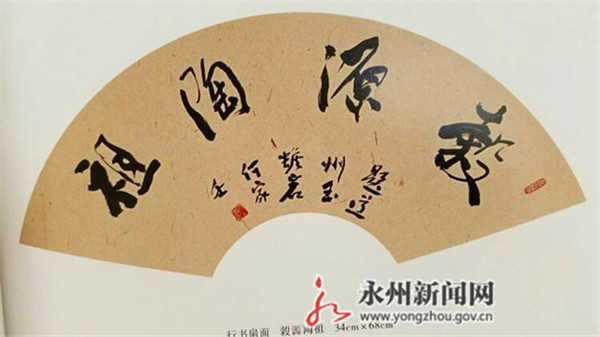 穀源陶祖
题道
州玉
蟾岩
何家
永州新闻网
www.yongzhou.gov.cn
行书扇面 穀源陶祖 34cm×68cm